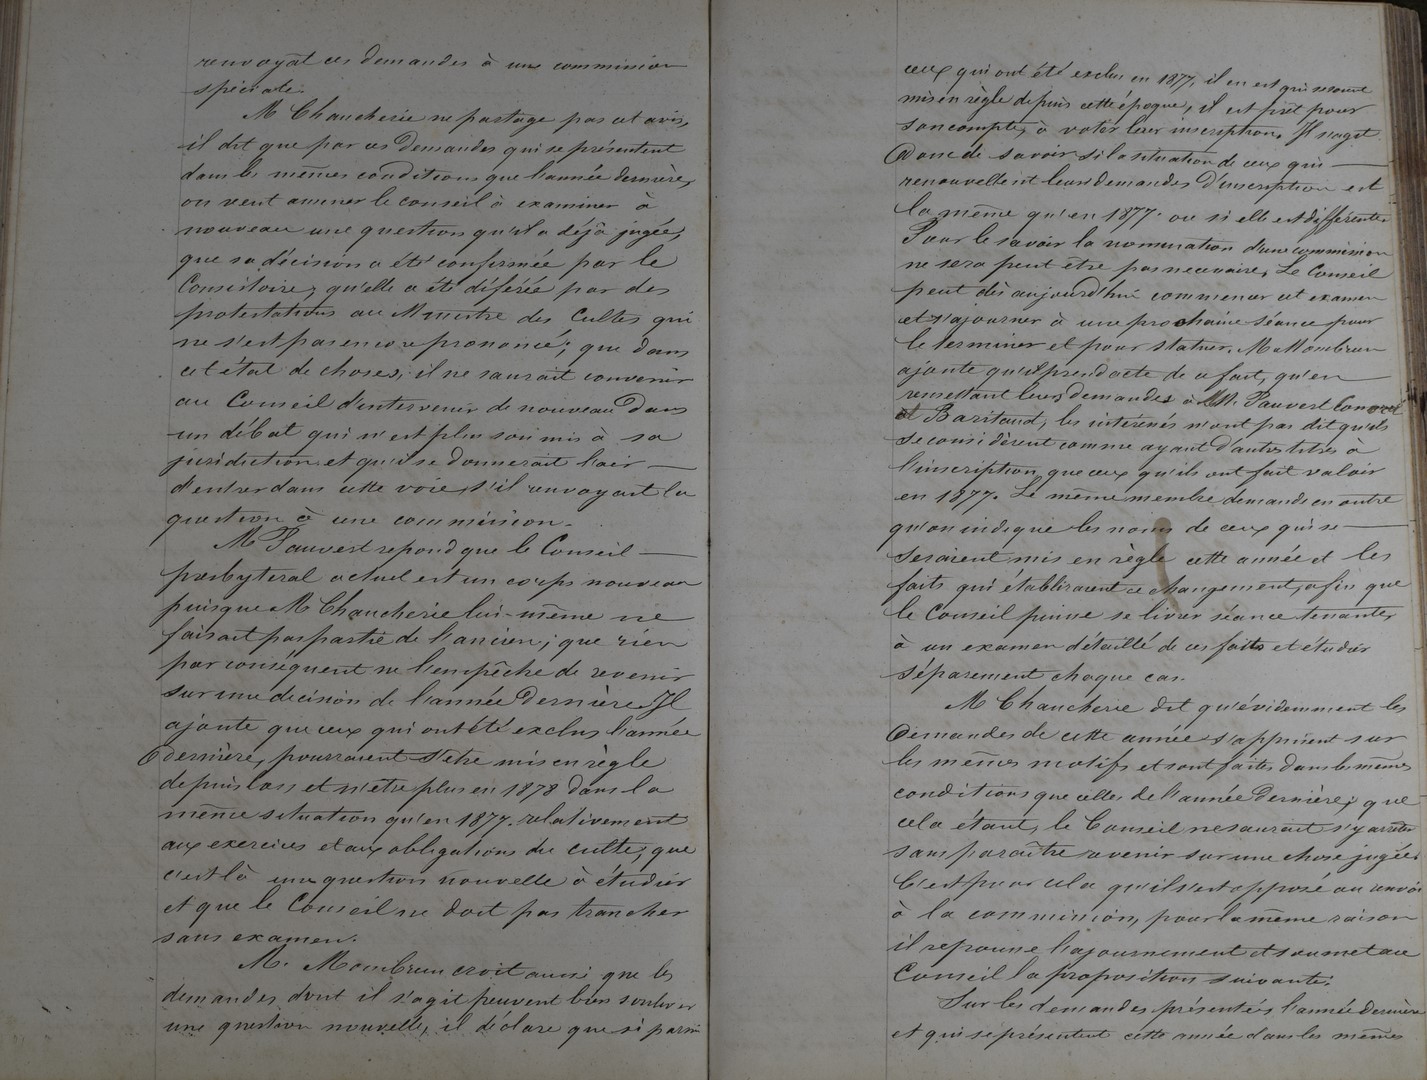 renvoyat ces demandes à une commission
spéciale.
M Chaucherie ne partage pas cet avis,
il dit que par ces demandes qui se présentent
dans les mêmes conditions que l'année dernière,
on veut amener le conseil à examiner à
nouveau une question qu'il a déjà jugée,
que sa décision a été confirmée par le
Consistoire, qu'elle a été déférée par des
protestations au Ministre des Cultes qui
ne s'est pas encore prononcé; que dans
cet état de choses, il ne saurait convenir
au Conseil d'intervenir de nouveau dans
un débat qui n'est plus soumis à sa
juridiction et qu'il se donnerait l'air
d'entrer dans cette voie, s'il renvoyait la
question à une commission.
M Pauvert répond que le Conseil
presbyteral actuel est un corps nouveau
puisque M Chaucherie lui-même ne
faisait pas partie de l'ancien; que rien
par conséquent ne l'empêche de revenir
sur une décision de l'année dernière. Il
ajoute que ceux qui ont été exclus l'année
dernière, pourraient s'être mis en règle
depuis lors et n'être plus en 1878 dans la
même situation qu'en 1877. relativement
aux exercices et aux obligations du culte; que
c'est là une question nouvelle à étudier
et que le Conseil ne doit pas trancher
sans examen.
M. Mombrun croit aussi que les
demandes dont il s'agit peuvent bien soulever
une question nouvelle, il déclare que si parmi
ceux qui ont été exclus en 1877, il en est qui se sont
mis en règle depuis cette époque, il est prêt pour
son compte, à voter leur inscription. Il s'agit
donc de savoir si la situation de ceux qui
renouvellent leurs demandes d'inscription est
la même qu'en 1877. ou si elle est différente.
Pour le savoir la nomination d'une commission
ne sera peut être pas necessaire, Le Conseil
peut dès aujourd'hui commencer cet examen
et s'ajourner à une prochaine séance pour
le terminer et pour statuer. M Mombrun
ajoute qu'il prend acte de ce fait, qu'en
remettant leurs demandes à MM. Pauvert
et Baritaud, les intéressés n'ont pas dit qu'ils
se considèrent comme ayant d'autres titres à
l'inscription que ceux qu'ils ont fait valoir
en 1877. Le même membre demande en outre
qu'on indique les noms de ceux qui se
seraient mis en règle cette année et les
faits qui établiraient ce changement, afin que
le Conseil puisse se livrer séance tenante,
à un examen détaillé de ces faits et étudier
séparement chaque cas.
M Chaucherie dit qu'évidemment les
demandes de cette année s'appuient sur
les mêmes motifs et sont faites dans les mêmes
conditions que celles de l'année dernière; que
cela étant, le Conseil ne saurait s'y arrêter
sans paraître revenir sur une chose jugée.
C'est pour cela qu'il s'est opposé au renvoi
à la commission, pour la même raison
il repousse l'ajournement et soumet au
Conseil la proposition suivante:
Sur les demandes présentées l'année dernière
et qui se présentent cette année dans les mêmes